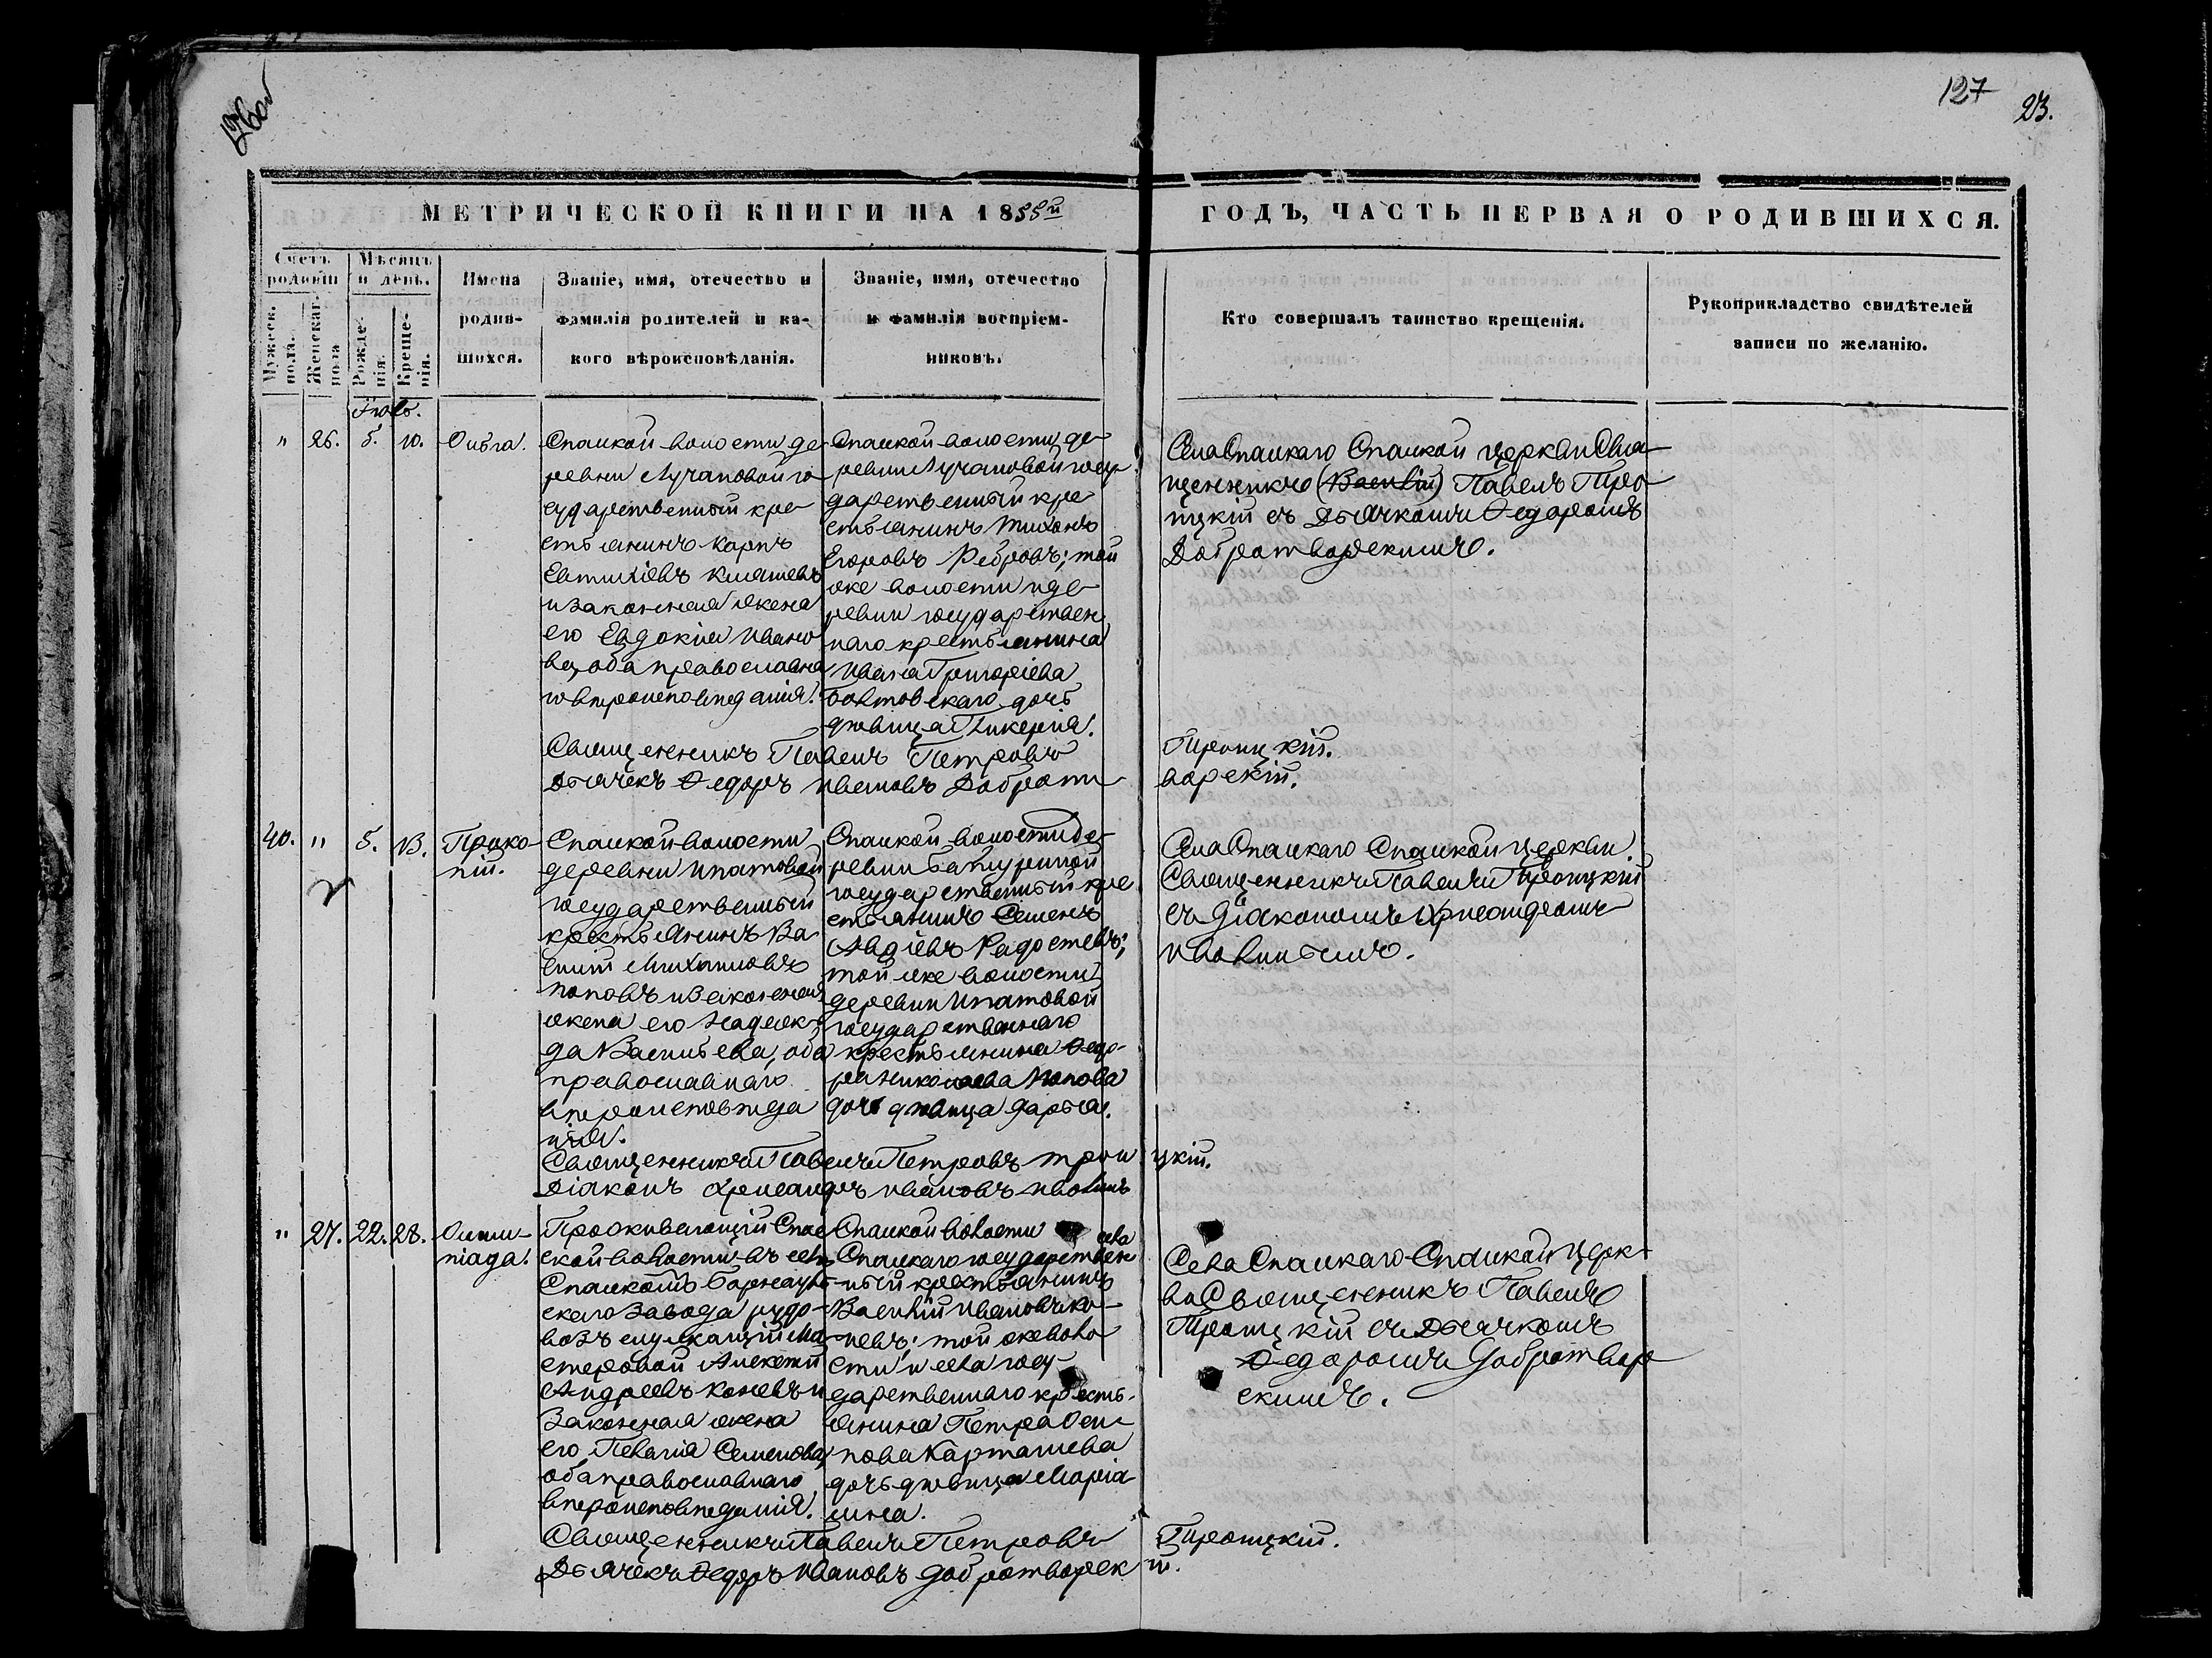 126об
127
23.
МЕТРИЧЕСКОЙ КНИГИ НА 1855й
ГОДЪ, ЧАСТЬ ПЕРВАЯ О РОДИВШИХСЯ.
Счетъ родивш
Мужеск. пола.
Женскаг. пола
Мѣсяцъ и день.
Рожде-
нія.
Креще-
нія.
Имена
родив-
шихся.
Званіе, имя, отечество и
фамилія родителей и ка-
кого вѣроисповѣданія.
Званіе, имя, отечество
и фамилія воспріем-
никовъ.
Кто совершалъ таинство крещенія.
Рукоприкладство свидѣтелей
записи по желанію.
Іюль.
" 26. 5. 10. Ольга.
Спаской волости де-
ревни Лучановой го-
сударственный кре-
стьянинъ Карпъ
Евтихіевъ
и законная жена
его Евдокія Ивано
ва, оба православна
го вѣроисповѣданія.
Спаской волости де-
ревни Лучановой госу-
дарственный кре-
стьянинъ Тихонъ
Егоровъ Ребровъ; той
же волости и де-
ревни государствен
наго крестьянина
Ивана Григоріева
дочь
дѣвица Гликерія.
Села Спаскаго Спаской церкви Свя-
щенникъ (Василій) Павелъ Тро-
ицкій съ Дьячкомъ Федоромъ
Добротворскимъ.
Священникъ Павелъ Петровъ Троицкій.
Дьячекъ Федоръ Ивановъ Добротворскій.
40. " 8. 13. Проко-
пій.
Спаской волости
деревни Ипатовой
государственный
крестьянинъ Ва
силій Михаиловъ
Поповъ и законная
жена его Надеж-
да Васильева, оба
православнаго
вѣроисповѣда
нія.
Спаской волости де-
ревни Батуриной
государственный кре
стьянинъ Семенъ
Авдіевъ Радостевъ;
той же волости
деревни Ипатовой
государственнаго
крестьянина Федо-
ра Николаева Попова
дочь дѣвица Дарья.
Села Спаскаго Спаской церкви.
Священникъ Павелъ Троицкій
съ Діакономъ Хрисанфомъ
Ивановъ Троицкій.
Священникъ Павелъ Петровъ Троицкій.
Діаконъ Хрисанфъ Ивановъ
" 27. 22. 28. Олим-
піада.
Проживающій Спас
ской волости въ селѣ
Спаскомъ Барнауль-
скаго завода рудо-
возъ служащій ма
стеровой Алексѣй
Андреевъ Коневъ и
законная жена
его Пелагія Семенова,
оба православнаго
вѣроисповѣданія.
Спаской волости села
Спаскаго государствен
ный крестьянинъ
Василій Ивановъ Ко-
невъ; той же воло
сти и села госу-
дарственнаго кресть-
янина Петра Оси-
пова Карташева
дочь дѣвица Маріа
мна.
Села Спаскаго Спаской церк-
ви Священникъ Павелъ
Троицкій съ Дьячкомъ
Федоромъ Добротвор
скимъ.
Священникъ Павелъ Петровъ Троицкій.
Дьячекъ Федоръ Ивановъ Добротворскій.